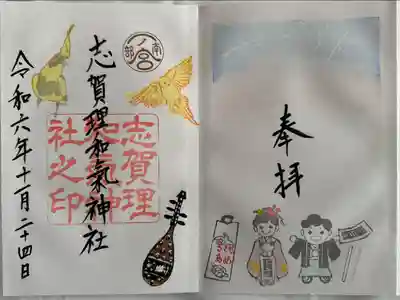 奉拝
南部
一ノ宮
志賀理和氣神社
志賀理
和氣神
社之印
令和六年十一月二十四日